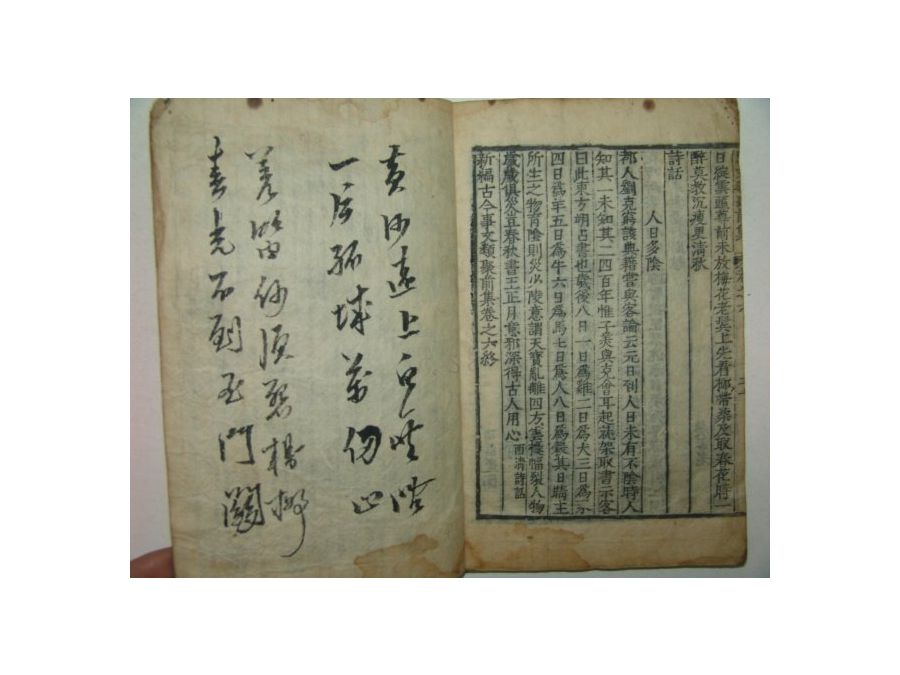 日縱雲 尊前未放梅花老鬢上先看柳帶 及取春花時一
醉莫教沉瘦更淸秋
詩話
人日多陰
都人劉克窮該典籍嘗與客論云元日到人日未有不陰時人
知其一未知其二四百年惟子美與克會耳起就架取書示客
曰此東方朔占書也歲後八日一日爲雞二日爲犬三日爲豕
四日爲羊五日爲牛六日爲馬七日爲人八日爲穀其日晴主
所生之物育陰則災少陵意謂天寶亂離四方雲擾幅裂人物
歲歲俱災豈春秋書王正月意邪深得古人用心 西淸詩話
新編古今事文類聚前集卷之六終
黃沙遠上白雲間
一片孤城萬仞山
羌笛何須怨楊柳
春光不到玉門關